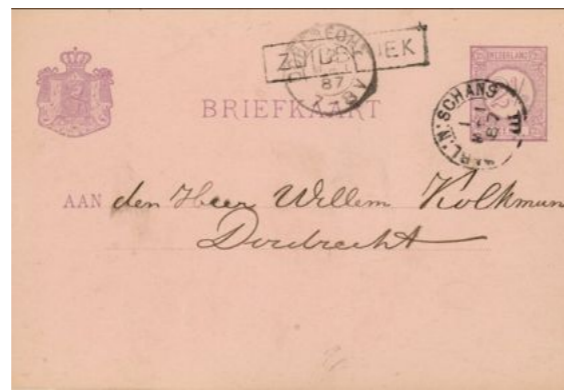 87
NEDERLAND
SCHANS
87
BRIEFKAART
AAN den Heer Willem Kolkmun
Dordrecht